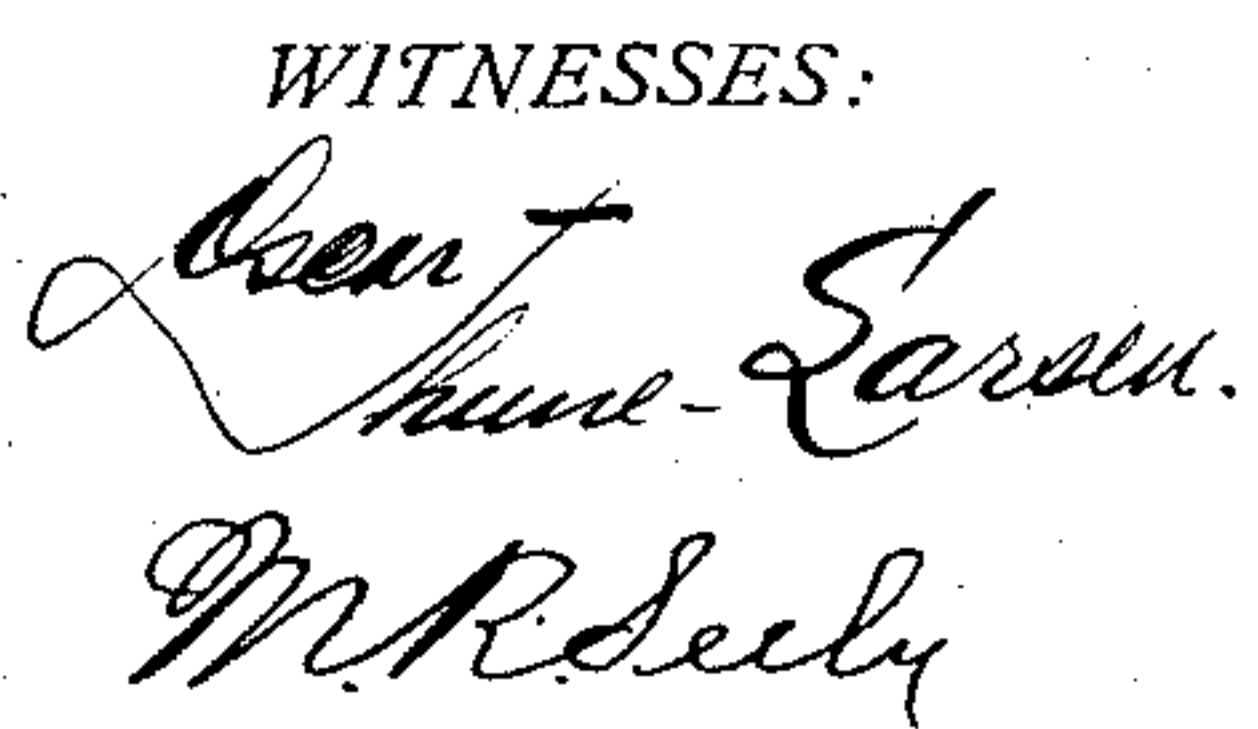 WITNESSES:
Oscar Thune-Larsen.
M. R. Seely